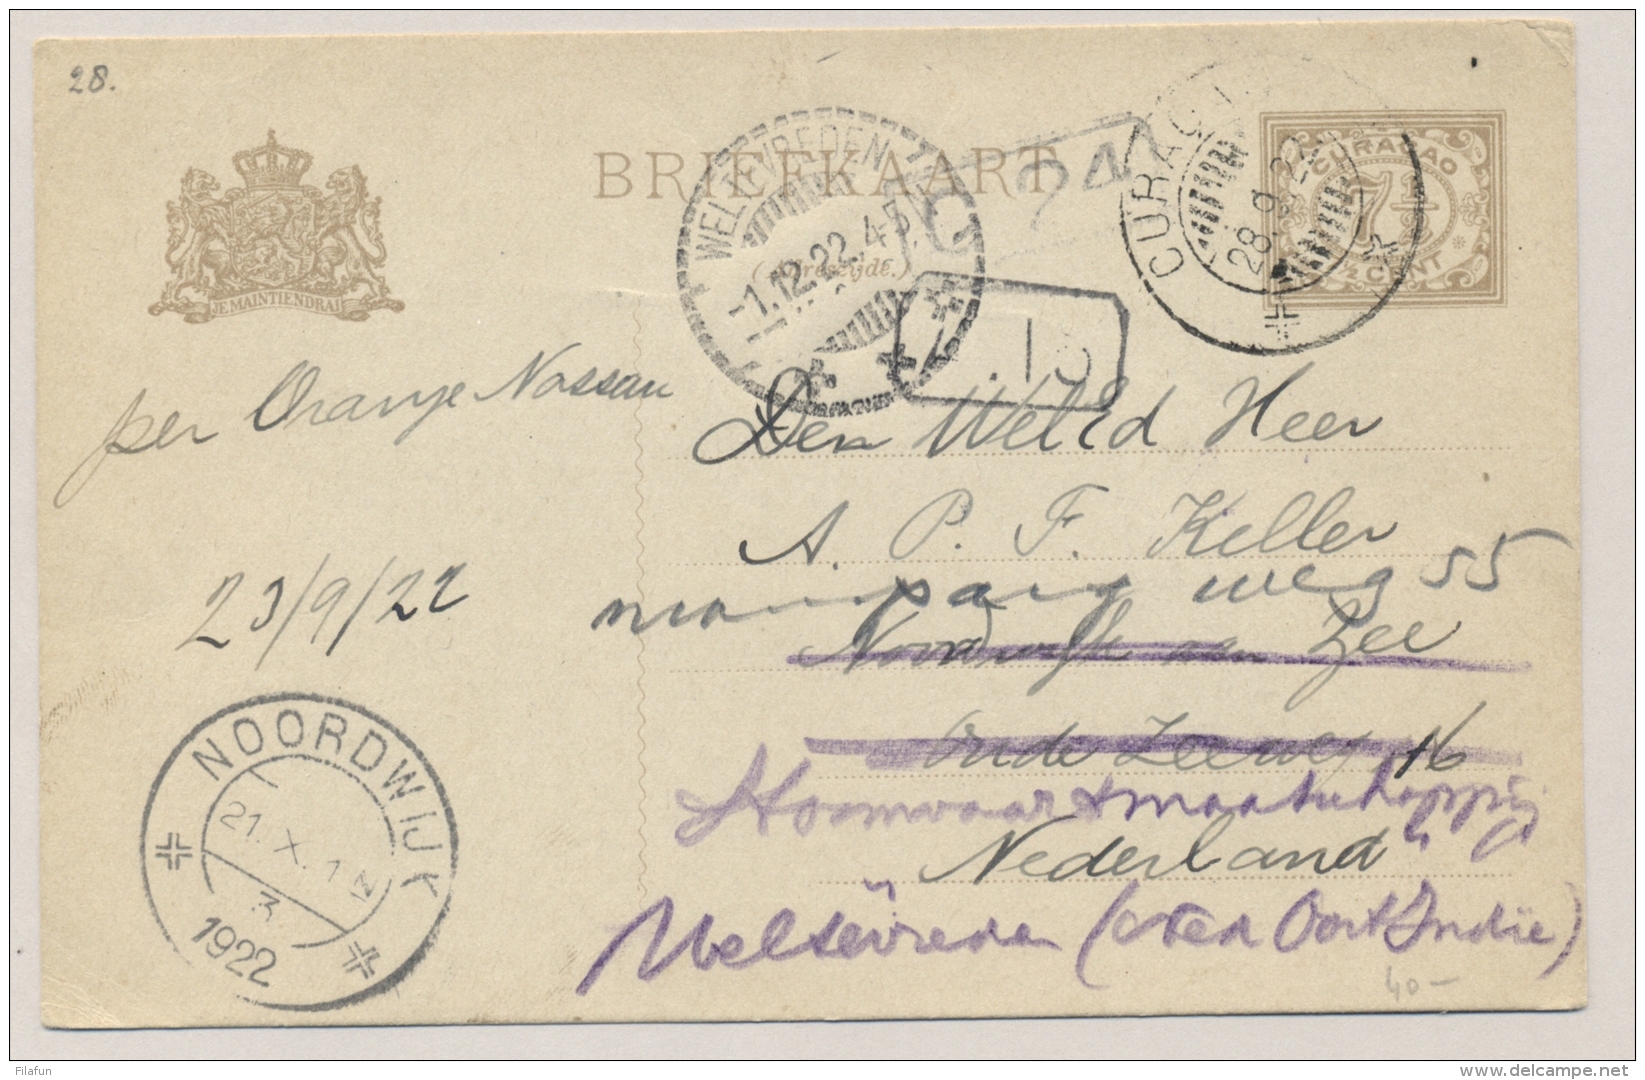 28.
BRIEFKAART
JE MAINTIENDRAI
CURAÇAO
7½
CENT
CURAÇAO
28.9.22
WELTEVREDEN
-1.12.22. 4-5
24
per Oranje Nassau
23/9/22
Den WelEd Heer
A. P. F. Keller
weg 55
Noordwijk aan Zee
Oude Zeeweg 16
Stoomvaartmaatschappij
Nederland
Weltevreden (Ned Oost Indïe)
40-
NOORDWIJK
21.X.
3
1922
Filafun
www.delcampe.net